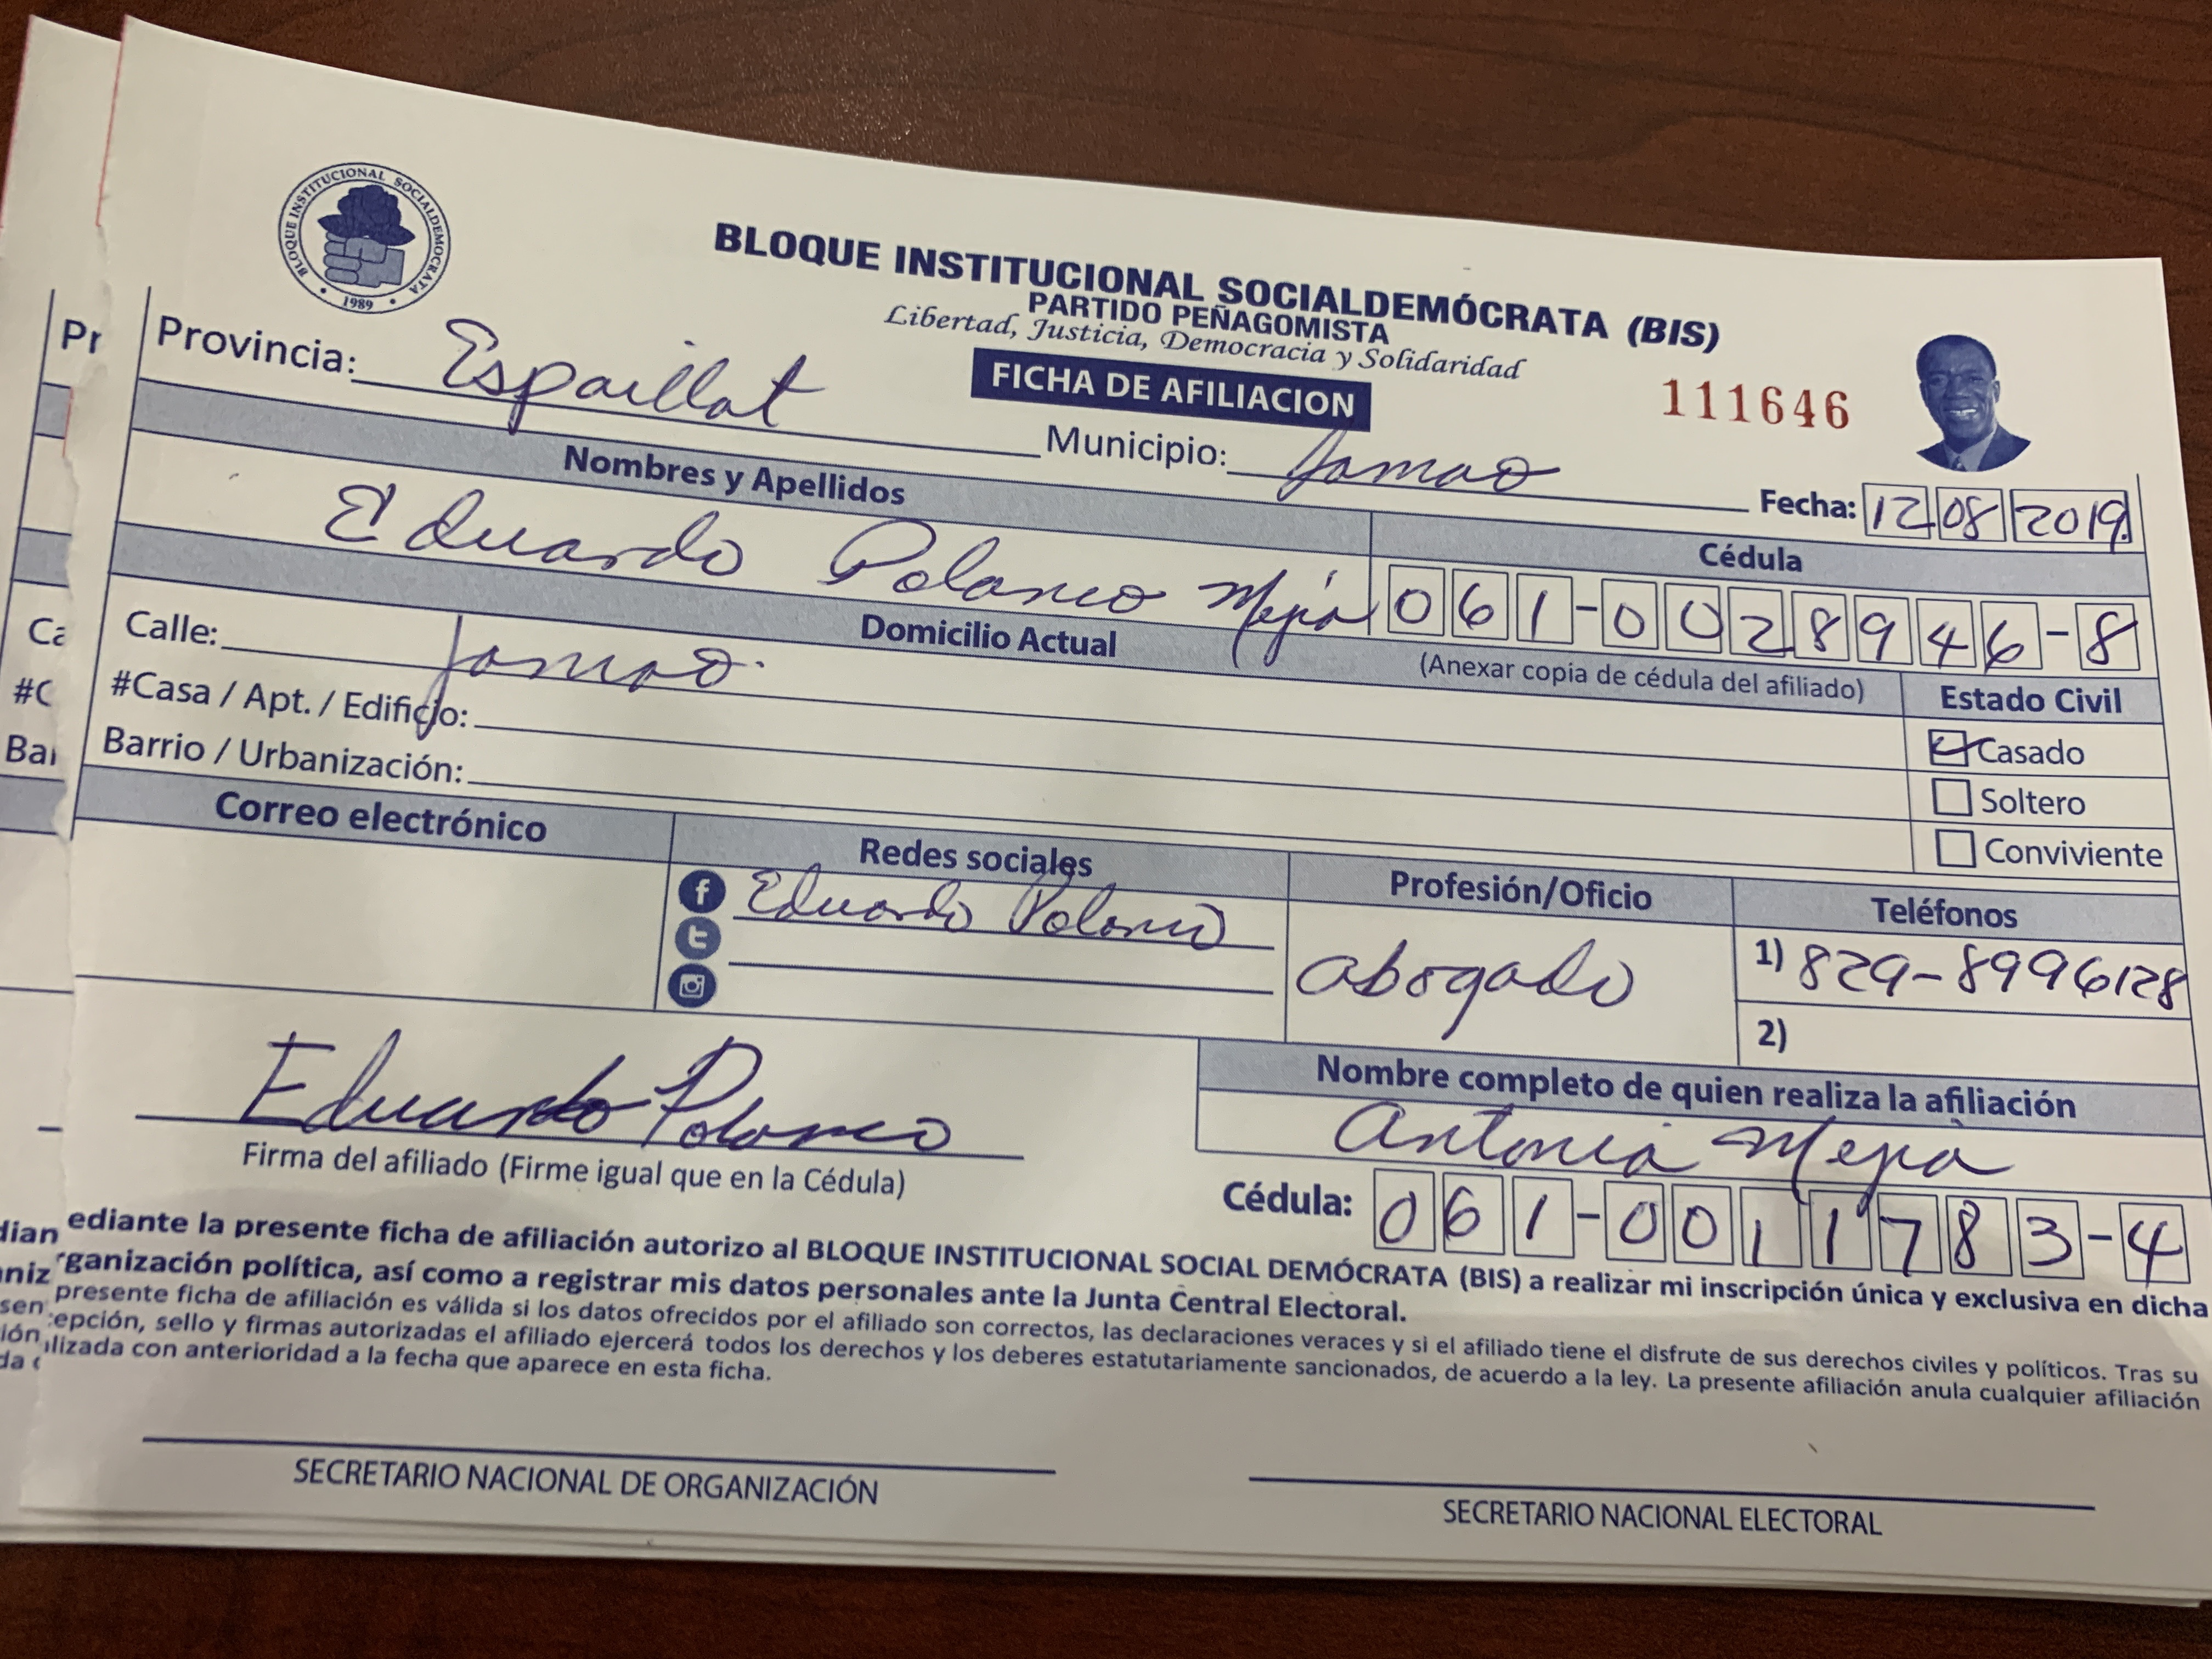 BLOQUE INSTITUCIONAL SOCIALDEMOCRATA
1989
BLOQUE INSTITUCIONAL SOCIALDEMÓCRATA (BIS)
PARTIDO PEÑAGOMISTA
Libertad, Justicia, Democracia y Solidaridad
FICHA DE AFILIACION
111646
Provincia: Espaillat Municipio: Jamao Fecha: 12 08 2019
Nombres y Apellidos Cédula
Eduardo Polanco Mejía 061-0028946-8
(Anexar copia de cédula del afiliado)
Domicilio Actual Estado Civil
Calle: Jamao.
#Casa / Apt. / Edificio:
Barrio / Urbanización:
Casado
Soltero
Conviviente
Correo electrónico Redes sociales Profesión/Oficio Teléfonos
f Eduardo Polanco
t
abogado
1) 829-8996128
2)
Eduardo Polanco
Firma del afiliado (Firme igual que en la Cédula)
Nombre completo de quien realiza la afiliación
Antonia Mejia
Cédula: 061-0011783-4
ediante la presente ficha de afiliación autorizo al BLOQUE INSTITUCIONAL SOCIAL DEMÓCRATA (BIS) a realizar mi inscripción única y exclusiva en dicha
rganización política, así como a registrar mis datos personales ante la Junta Central Electoral.
presente ficha de afiliación es válida si los datos ofrecidos por el afiliado son correctos, las declaraciones veraces y si el afiliado tiene el disfrute de sus derechos civiles y políticos. Tras su
epción, sello y firmas autorizadas el afiliado ejercerá todos los derechos y los deberes estatutariamente sancionados, de acuerdo a la ley. La presente afiliación anula cualquier afiliación
lizada con anterioridad a la fecha que aparece en esta ficha.
SECRETARIO NACIONAL DE ORGANIZACIÓN
SECRETARIO NACIONAL ELECTORAL